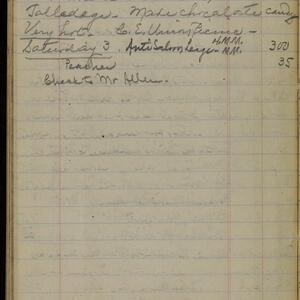 Talladega. Made chocolate candy
Very hot. C. E. Union Picnic -
H.M.M.
Saturday 3. Anti Saloon League - M.M. 300
Peaches 35
Check to Mr Allen.